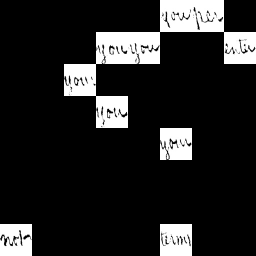 you per
you you inter
your
you
you
not terms